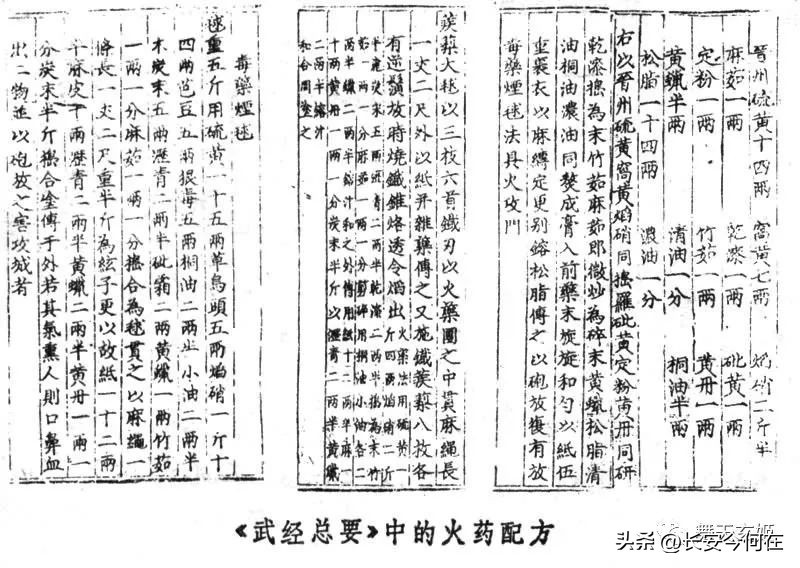 晉州硫黄十四兩 窩黄七兩 焰硝二斤半
麻茹一兩 乾漆一兩 砒黄一兩
定粉一兩 竹茹一兩 黄丹一兩
黄蠟半兩 清油一分 桐油半兩
松脂一十四兩 濃油一分
右以晉州硫黄窩黄焰硝同擣羅砒黄定粉黄丹同研
乾漆擣為末竹茹麻茹即微炒為碎末黄蠟松脂清
油桐油濃油同熬成膏入前藥末旋旋和匀以紙伍
重裹衣以麻縛定更別鎔松脂傅之以砲放復有放
毒藥煙毬法具火攻門
蒺藜火毬以三枝六首鐵刃以火藥團之中貫麻繩長
一丈二尺外以紙并雜藥傅之又施鐵蒺藜八枚各
有逆鬚放時燒鐵錐烙透令焰出
火藥法用硫黄一
斤四兩焰硝二斤
半麄炭末五兩瀝青二兩半乾漆二兩半擣為末竹
茹一兩一分麻茹一兩一分剪碎用桐油小油各二
兩半蠟二兩半鎔汁和之外傅用紙十二兩半麻一
十兩黄丹一兩一分炭末半斤以瀝青二兩半黄蠟
二兩半鎔汁
和合周塗之
毒藥煙毬
毬重五斤用硫黄一十五兩草烏頭五兩焰硝一斤十
四兩芭豆五兩狼毒五兩桐油二兩半小油二兩半
木炭末五兩瀝青二兩半砒霜二兩黄蠟一兩竹茹
一兩一分麻茹一兩一分擣合為毬貫之以麻繩一
條長一丈二尺重半斤為絃子更以故紙一十二兩
半麻皮十兩瀝青二兩半黄蠟二兩半黄丹一兩一
分炭末半斤擣合塗傅于外若其氣熏人則口鼻血
出二物並以砲放之害攻城者
《武经总要》中的火药配方
舞王玄姬
头条 @长安今何在